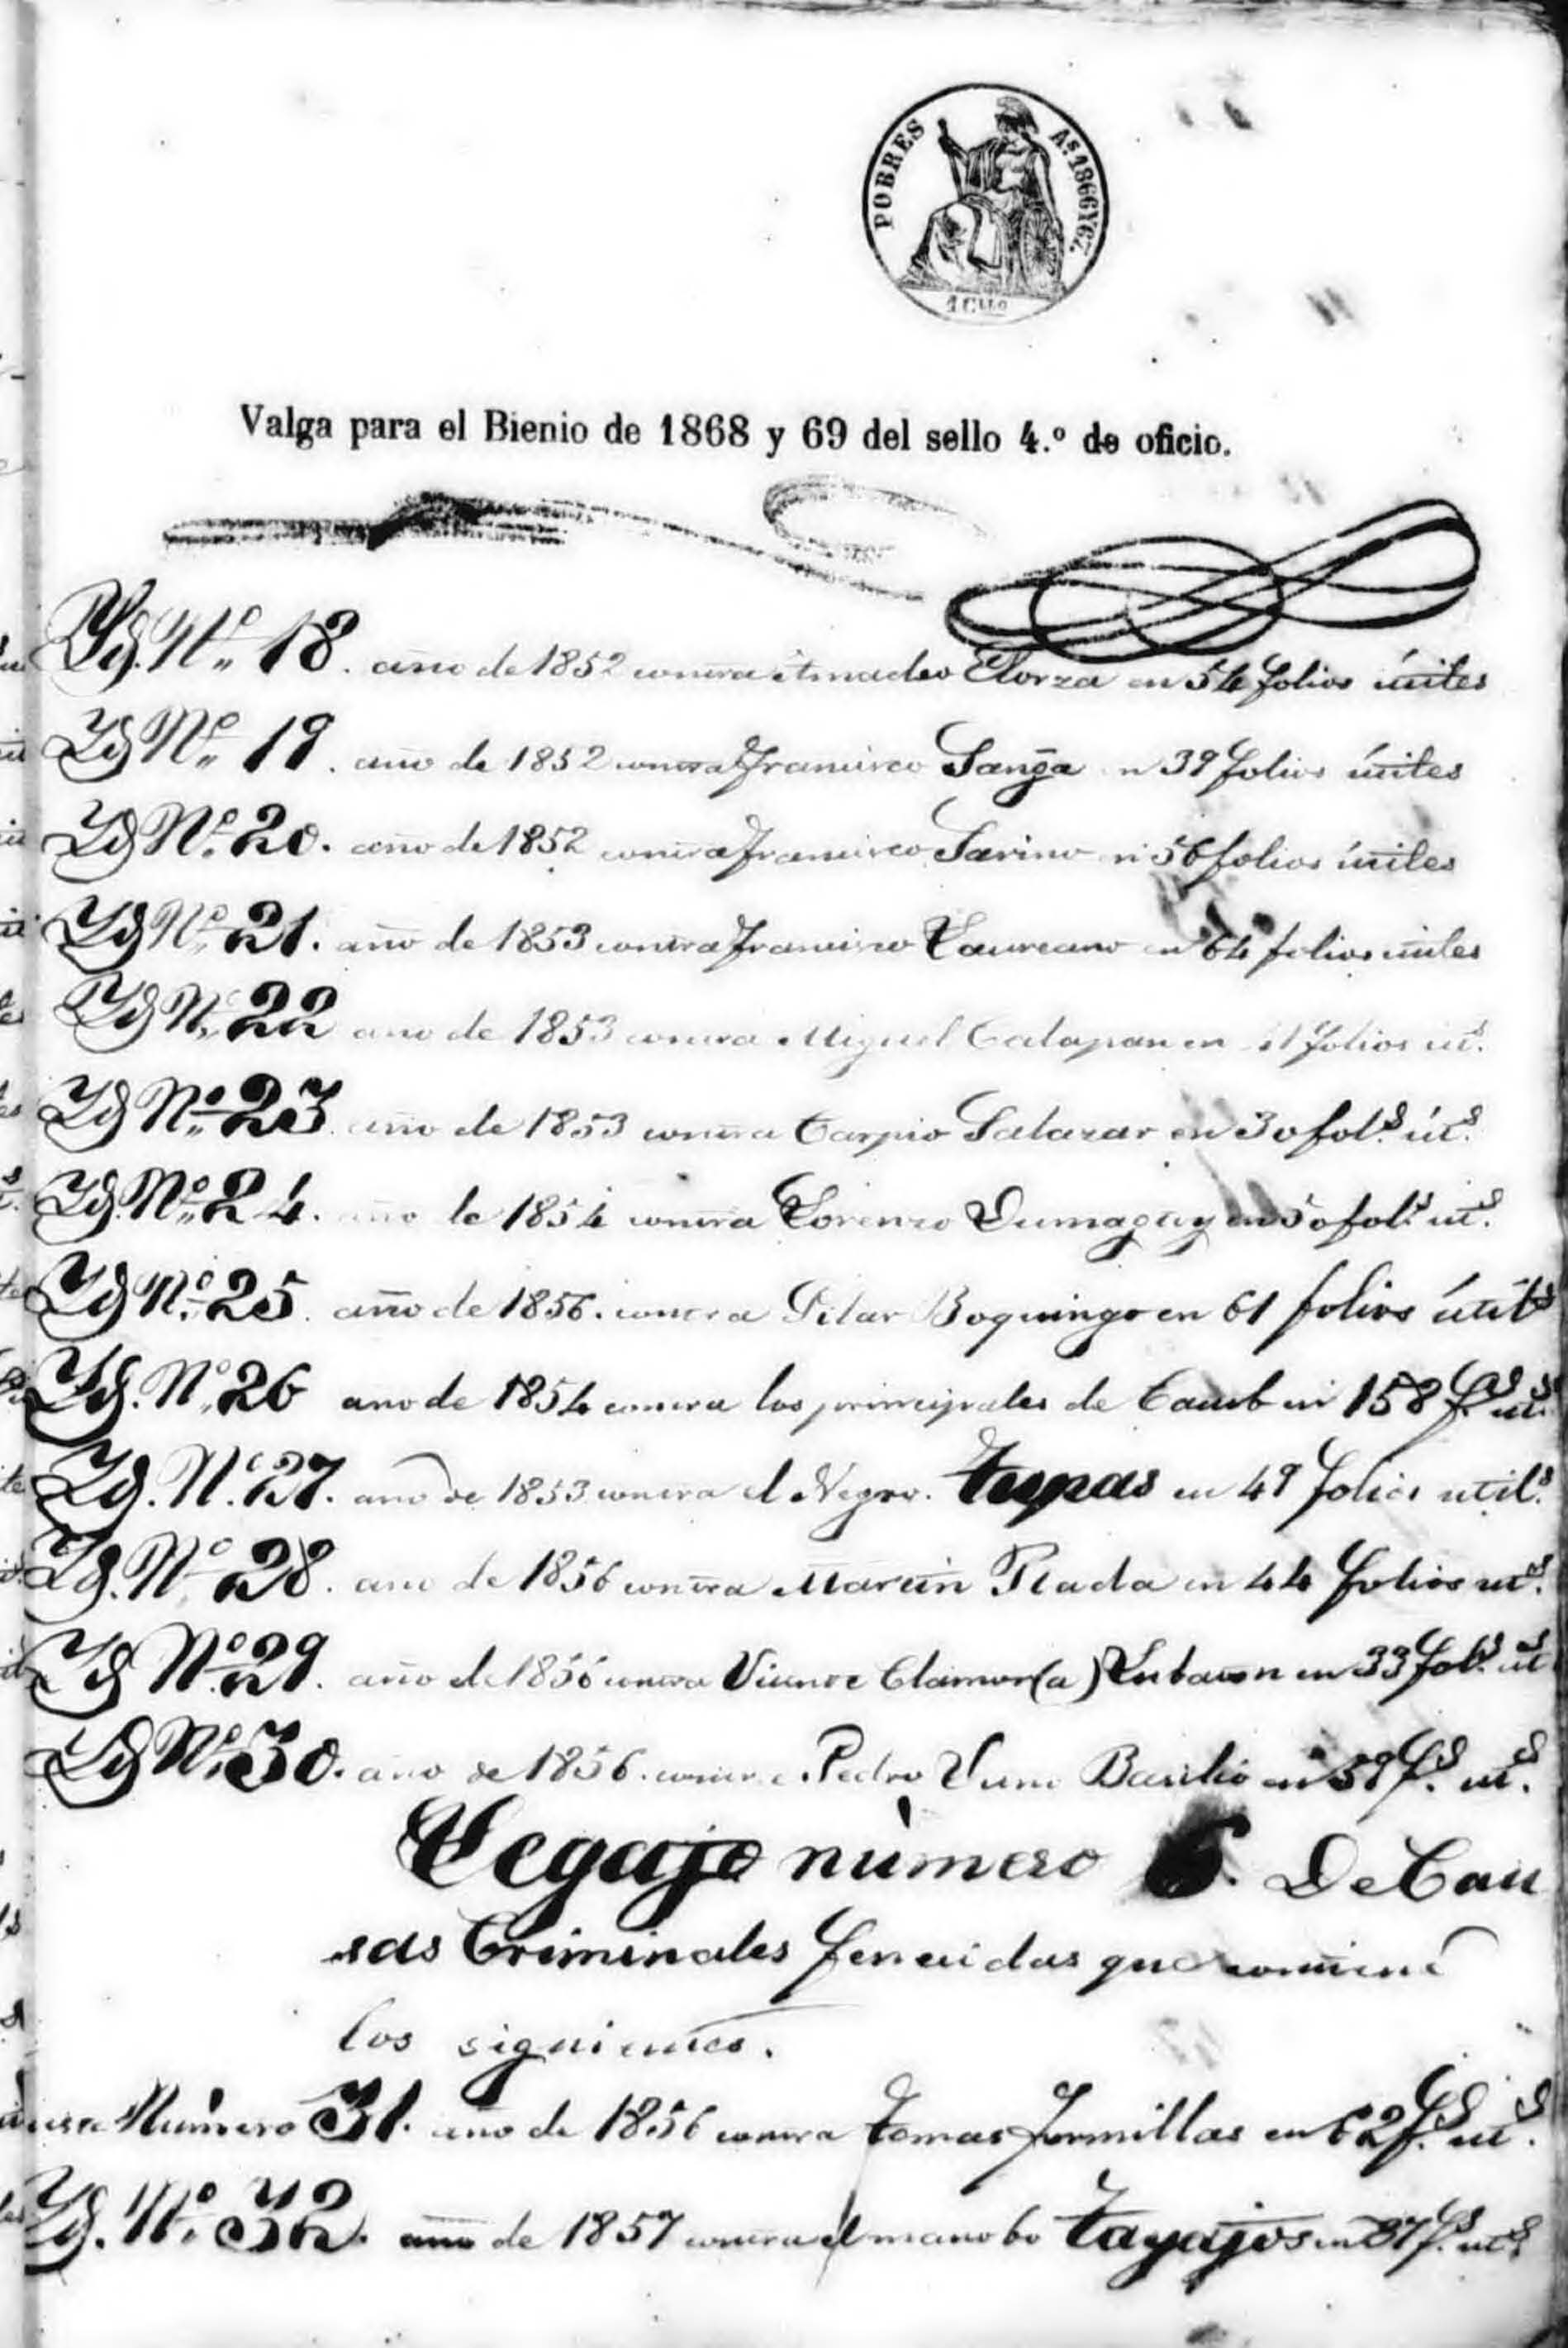 POBRES Aˢ. 1866 Y 67.
4 Cuᵒ
Valga para el Bienio de 1868 y 69 del sello 4.º de oficio.
Yd. Nº 18. año de 1852 contra Amadeo Elorza en 54 folios útiles
Yd Nº 19. año de 1852 contra Francisco Sanga en 39 folios útiles
Yd Nº 20. año de 1852 contra Francisco Sarino en 56 folios útiles
Yd Nº 21. año de 1853 contra Francisco Laureano en 64 folios útiles
Yd Nº 22 año de 1853 contra Miguel Catapan en folios utˢ.
Yd Nº 23 año de 1853 contra Carpio Salazar en 30 folˢ. útˢ.
Yd. Nº 24. año de 1854 contra Lorenzo Dumagay en 50 folˢ. utˢ.
Yd Nº 25. año de 1856. contra Pilar Boquingo en 61 folios útilˢ
Yd. Nº 26 año de 1854 contra los principales de en 158 fˢ. utˢ.
Yd. Nº 27. año de 1853 contra el Negro. tupas en 49 folios utilˢ.
Yd. Nº 28. año de 1856 contra Martin Plada en 44 folios utˢ.
Yd Nº 29. año de 1856 contra Vicente Clamor (a) en 33 folˢ. utˢ
Yd Nº 30. año de 1856. contra Pedro Basilio en 59 fˢ. utˢ.
Legajo número 6. De Cau
sas Criminales fenecidas que contiene
los siguientes.
Causa Número 31. año de 1856 contra tomas Jormillas en 62 fˢ. utˢ.
Yd. Nº 32. año de 1857 contra el manobo tayajos en 37 fˢ. utˢ.